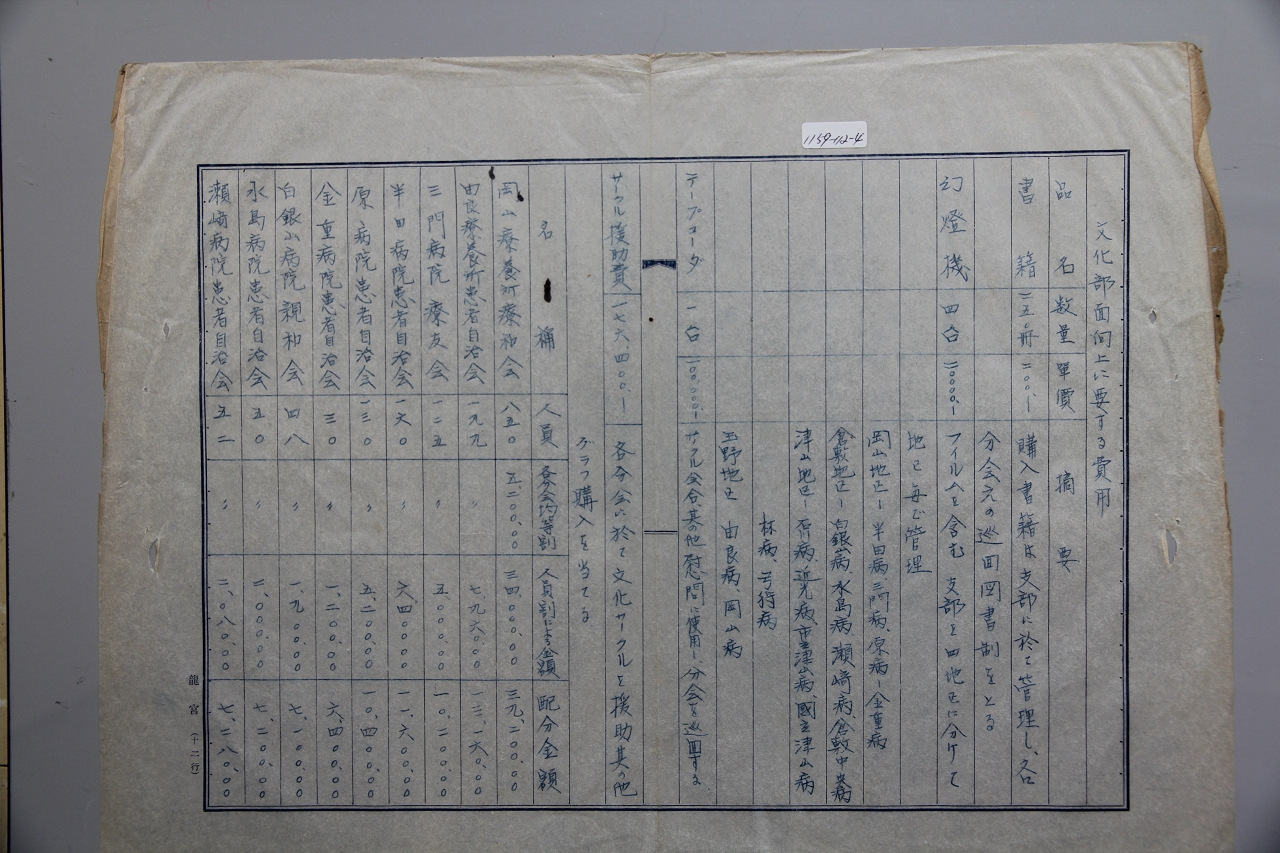 1159-112-4
文化部面向上に要する費用
品名 数量 單價 摘要
書籍 二五〇冊 二〇〇、ー 購入書籍は支部に於て管理し、各
分会えの巡回図書制をとる
幻燈機 四台 二〇〇〇〇、ー フイルムを含む 支部を四地区に分けて
地区毎に管理
岡山地区ー半田病、三門病、原病ー金重病
倉敷地区ー白銀山病、水島病、瀬崎病、倉敷中央病
津山地区ー石川病、近光病、重津山病、國立津山病
林病、
玉野地区 由良病、岡山病
テープコーダ 一台 一〇〇、〇〇〇、ー サークル会合、其の他慰問に使用し、分会を巡回する
サークル援助費 一七六、四〇〇、ー 各分会に於て文化サークルを援助其の他
グラフ購入を当てる
名稱 人員 各分会均等割 人員割による金額 配分金額
岡山療養所療和会 八五〇 五、二〇〇、〇〇 三四、〇〇〇、〇〇 三九、二〇〇、〇〇
由良療養所患者自治会 一九九 〃 七、九六〇、〇〇 一三、一六〇、〇〇
三門病院療友会 一二五 〃 五、〇〇〇、〇〇 一〇、二〇〇、〇〇
半田病院患者自治会 一六〇 〃 六、四〇〇、〇〇 一一、六〇〇、〇〇
原病院患者自治会 一三〇 〃 五、二〇〇、〇〇 一〇、四〇〇、〇〇
金重病院患者自治会 三〇 〃 一、二〇〇、〇〇 六、四〇〇、〇〇
白銀山病院親和会 四八 〃 一、九〇〇、〇〇 七、一〇〇、〇〇
水島病院患者自治会 五〇 〃 二、〇〇〇、〇〇 七、二〇〇、〇〇
瀬崎病院患者自治会 五二 〃 二、〇八〇、〇〇 七、二八〇、〇〇
龍宮（十二行）